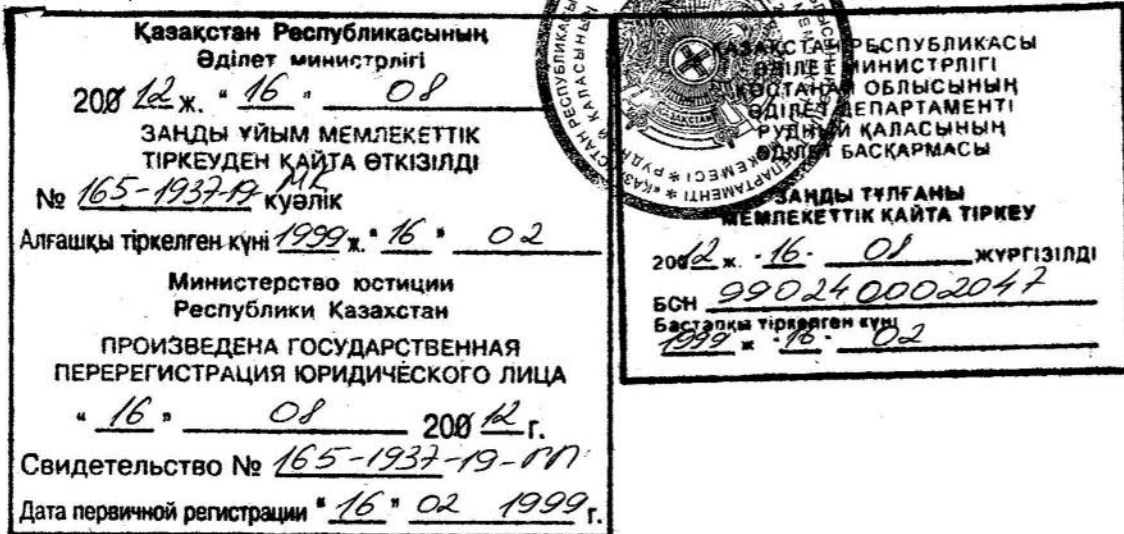 Қазақстан Республикасының
Әділет министрлігі
200 12 ж. "16" 08
ЗАҢДЫ ҰЙЫМ МЕМЛЕКЕТТІК
ТІРКЕУДЕН ҚАЙТА ӨТКІЗІЛДІ
№ 165-1937-19 МК куәлік
Алғашқы тіркелген күні 1999 ж. "16" 02
Министерство юстиции
Республики Казахстан
ПРОИЗВЕДЕНА ГОСУДАРСТВЕННАЯ
ПЕРЕРЕГИСТРАЦИЯ ЮРИДИЧЕСКОГО ЛИЦА
"16" 08 200 12 г.
Свидетельство № 165-1937-19-ГП
Дата первичной регистрации "16" 02 1999 г.
ҚАЗАҚСТАН РЕСПУБЛИКАСЫ
ӘДІЛЕТ МИНИСТРЛІГІ
ҚОСТАНАЙ ОБЛЫСЫНЫҢ
ӘДІЛЕТ ДЕПАРТАМЕНТІ
РУДНЫЙ ҚАЛАСЫНЫҢ
ӘДІЛЕТ БАСҚАРМАСЫ
ЗАҢДЫ ТҰЛҒАНЫ
МЕМЛЕКЕТТІК ҚАЙТА ТІРКЕУ
200 12 ж. "16" 08 ЖҮРГІЗІЛДІ
БСН 990240002047
Бастапқы тіркелген күні
1999 ж "16" 02